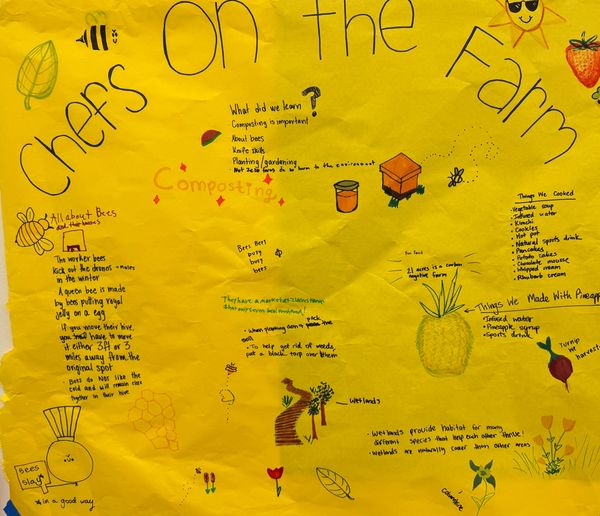 Chefs On the Farm
What did we learn?
Composting is important
About bees
Knife skills
Planting/gardening
Not zero farms do no harm to the environment
Composting
All about Bees
and their houses
The worker bees
kick out the drones → males
in the winter
A queen bee is made
by bees putting royal
jelly on a egg
If you move their hive,
you have to move
it either 3ft or 3
miles away from the
original spot
Bees do NOT like the
cold and will remain close
together in their hive
Bees Bees
busy
busy
bees
They have a market
When planting don't pack the
soil
To help get rid of weeds
put a black tarp over them
Fun Fact:
21 acres is a carbon
negative farm
Things We Cooked
Vegetable soup
Infused water
Kimchi
Cookies
Hot pot
Natural sports drink
Pancakes
Potato cakes
Chocolate mousse
Whipped cream
Rhubarb cream
Things We Made With Pineapp
Infused water
Pineapple syrup
Sports drink
Turnip
we
harveste
Wetlands
Wetlands provide habitat for many
different species that help each other thrive!
Wetlands are naturally cooler than other areas
Columbine
Bees
Slay*
*in a good way